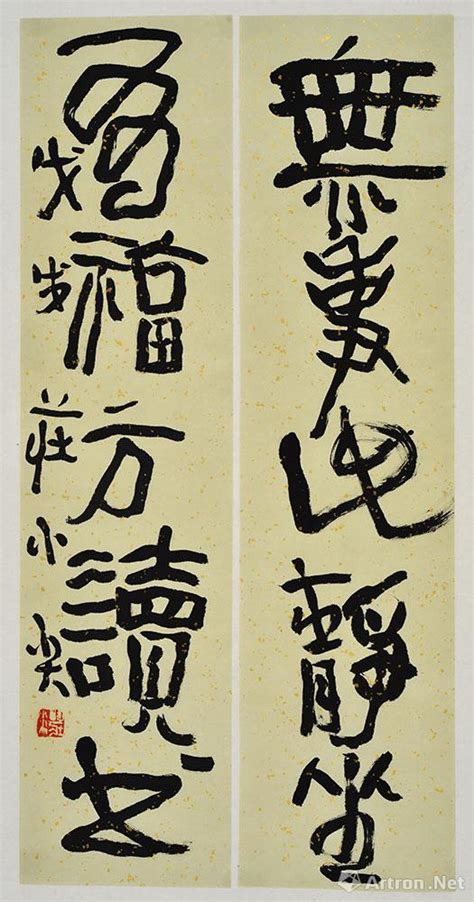 無事此靜坐
有福方讀書
戊戌莊小尖
Artron.Net